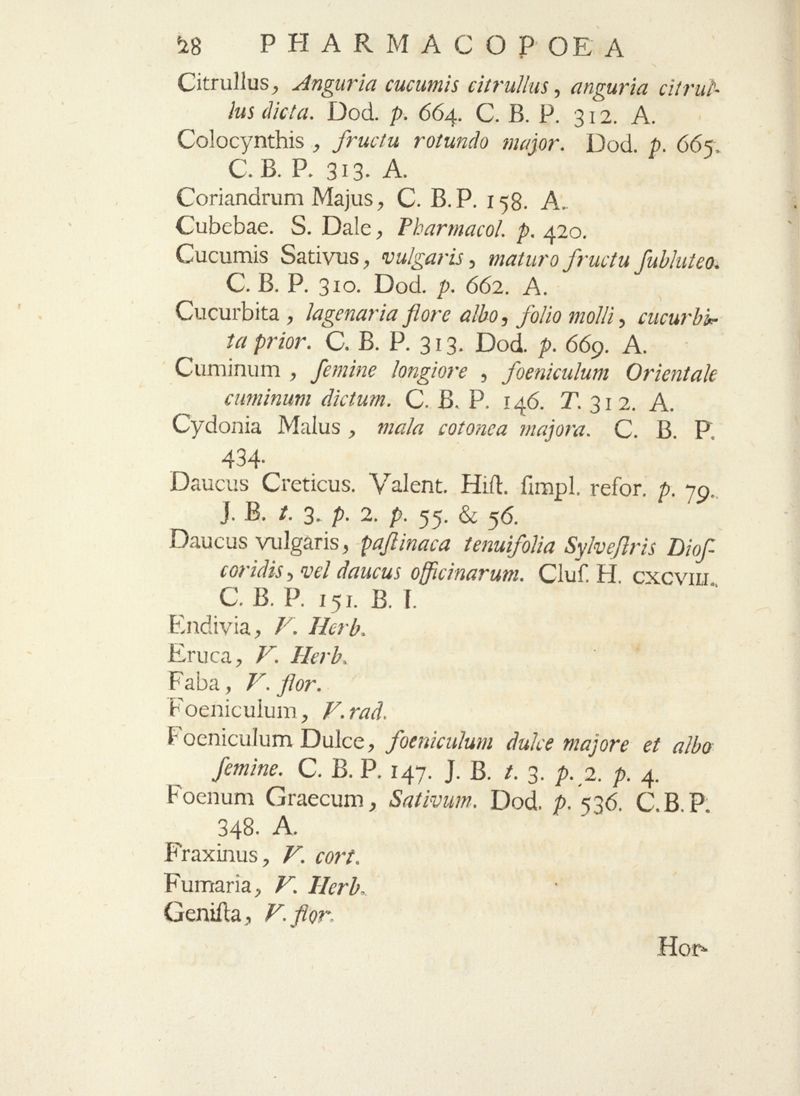 28 PHARMACOPOEA
Citrullus, Anguria cucumis citrullus, anguria citrul-
lus dicta. Dod. p. 664. C. B. P. 312. A.
Colocynthis, fructu rotundo major. Dod. p. 665.
C. B. P. 313. A.
Coriandrum Majus, C. B. P. 158. A.
Cubebae. S. Dale, Pharmacol. p. 420.
Cucumis Sativus, vulgaris, maturo fructu ſubluteo.
C. B. P. 310. Dod. p. 662. A.
Cucurbita, lagenaria flore albo, folio molli, cucurbi-
ta prior. C. B. P. 313. Dod. p. 669. A.
Cuminum, ſemine longiore, foeniculum Orientale
cuminum dictum. C. B. P. 146. T. 312. A.
Cydonia Malus, mala cotonea majora. C. B. P.
434.
Daucus Creticus. Valent. Hiſt. ſimpl. refor. p. 79.
J. B. t. 3. p. 2. p. 55. & 56.
Daucus vulgaris, paſtinaca tenuifolia Sylveſtris Dioſ-
coridis, vel daucus officinarum. Cluſ. H. CXCVIII.
C. B. P. 151. B. I.
Endivia, V. Herb.
Eruca, V. Herb.
Faba, V. flor.
Foeniculum, V. rad.
Foeniculum Dulce, foeniculum dulce majore et albo
ſemine. C. B. P. 147. J. B. t. 3. p. 2. p. 4.
Foenum Graecum, Sativum. Dod. p. 536. C. B. P.
348. A.
Fraxinus, V. cort.
Fumaria, V. Herb.
Geniſta, V. flor.
Hor-